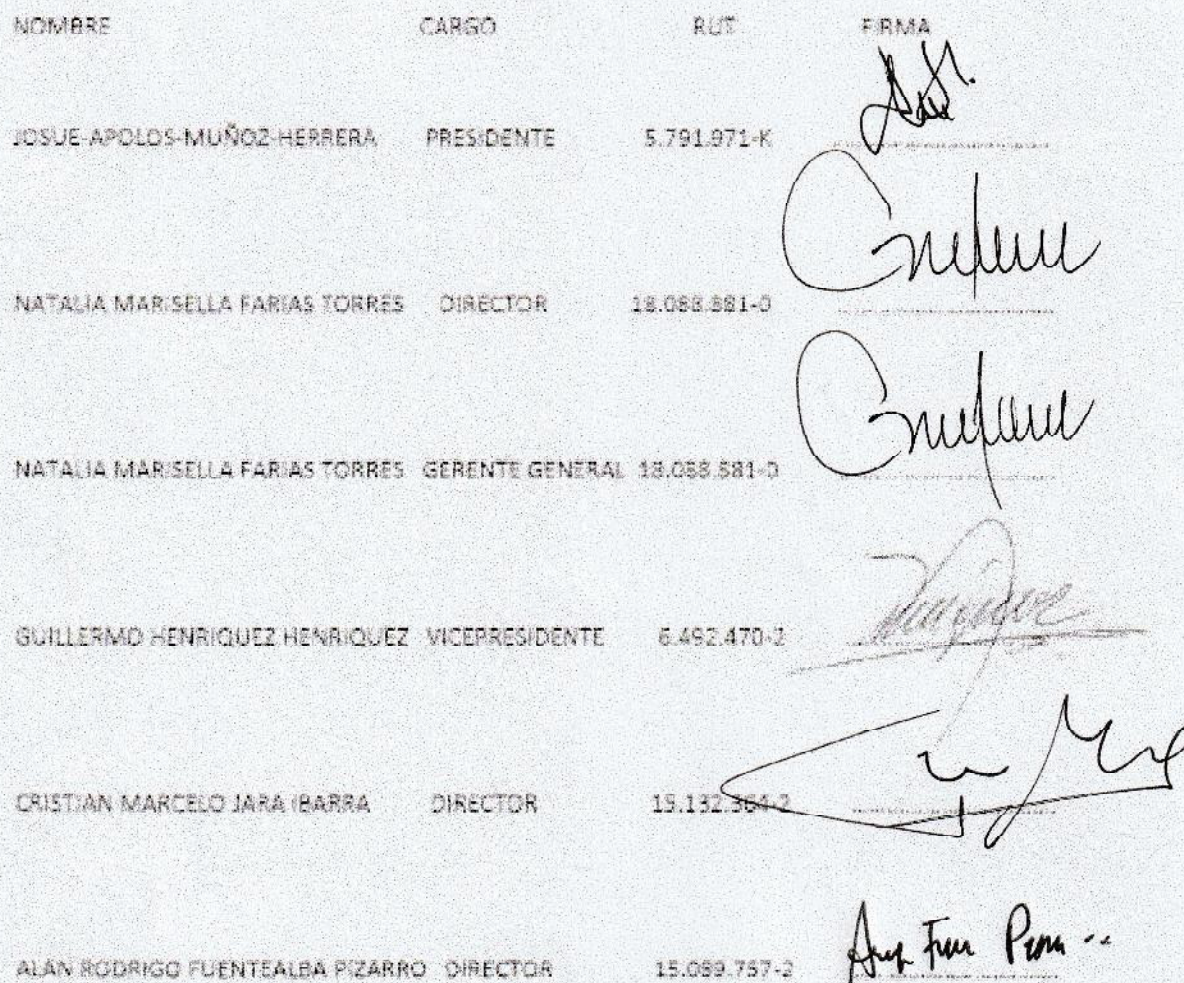 NOMBRE CARGO RUT FIRMA
JOSUE-APOLOS-MUÑOZ-HERRERA PRESIDENTE 5.791.971-K
NATALIA MARISELLA FARIAS TORRES DIRECTOR 18.088.881-0
NATALIA MARISELLA FARIAS TORRES GERENTE GENERAL 18.088.881-0
GUILLERMO HENRIQUEZ HENRIQUEZ VICEPRESIDENTE 6.492.470-2
CRISTIAN MARCELO JARA IBARRA DIRECTOR
ALAN RODRIGO FUENTEALBA PIZARRO DIRECTOR 15.099.757-2